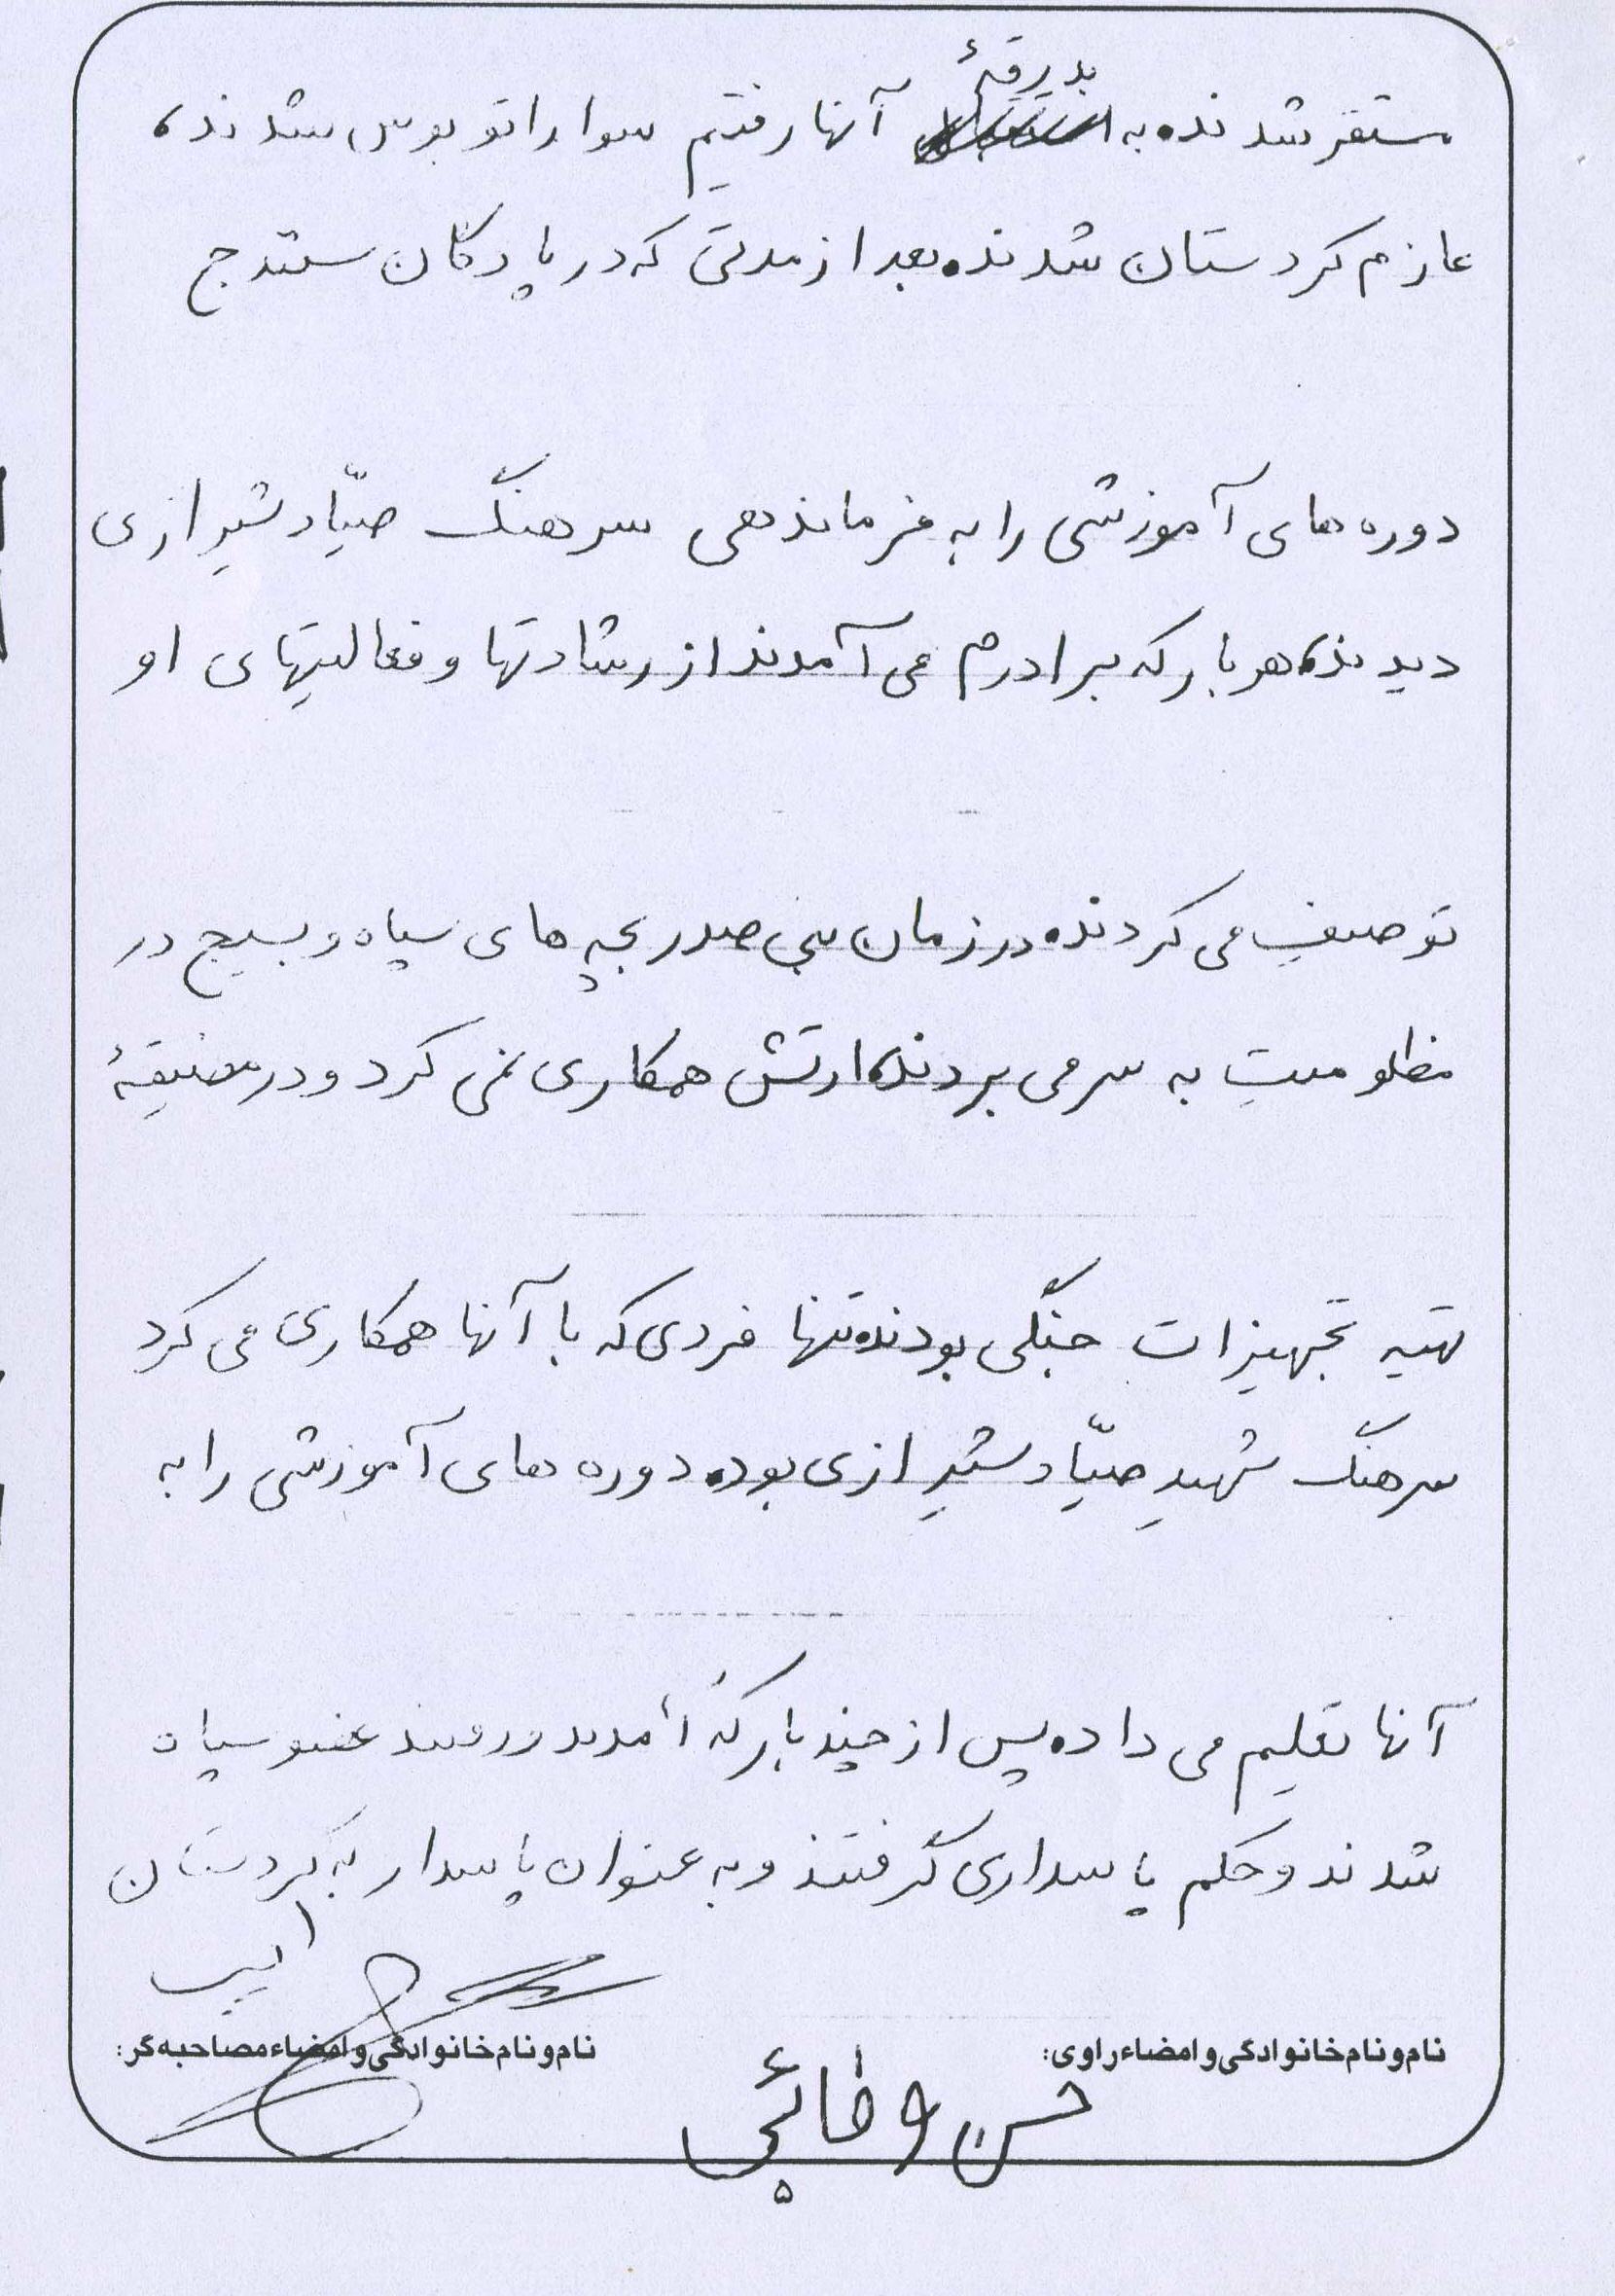 مستقر شدند. به بدرقهٔ آنها رفتیم سوار اتوبوس شدند،
عازم کردستان شدند. بعد از مدتی که در پادگان سنندج
دوره های آموزشی را به فرماندهی سرهنگ صیّاد شیرازی
دیدند، هر بار که برادرم می آمدند از رشادتها و فعالیتهای او
توصیف می کردند. در زمان بنی صدر بچه های سپاه و بسیج در
مظلومیت به سر می بردند، ارتش همکاری نمی کرد و در مضیقهٔ
تهیه تجهیزات جنگی بودند. تنها فردی که با آنها همکاری می کرد
سرهنگ شهید صیّاد شیرازی بود. دوره های آموزشی را به
آنها تعلیم می داد. پس از چند بار که آمدند و رفتند عضو سپاه
شدند و حکم پاسداری گرفتند و به عنوان پاسدار به کردستان
نام و نام خانوادگی و امضاء راوی:
نام و نام خانوادگی و امضاء مصاحبه گر:
حسن وفائی
۵